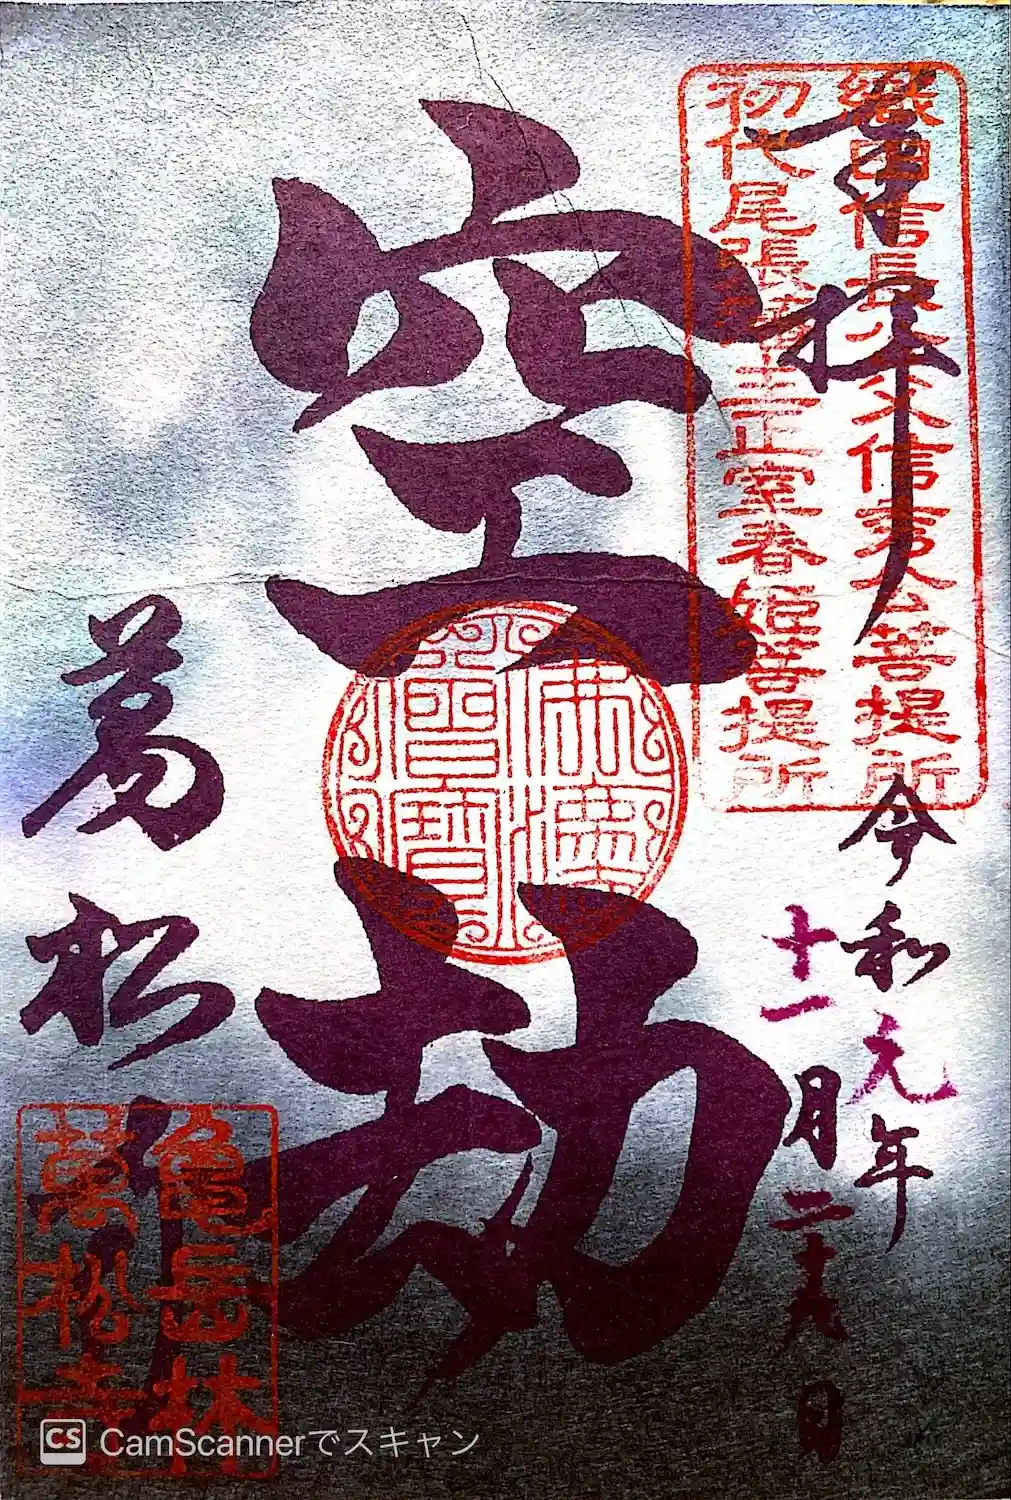 奉拝
織田信長公父信秀公菩提所
初代尾張藩主正室春姫菩提所
令和元年
十一月二十九日
空劫
萬松寺
亀岳林
萬松寺
CS CamScannerでスキャン